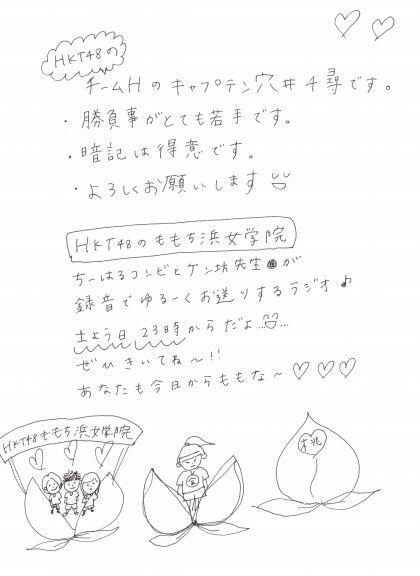 HKT48の
チームHのキャプテン穴井千尋です。
・勝負事がとても若手です。
・暗記は得意です。
・よろしくお願いします
HKT48のももち浜女学院
ちーはるコンビとケン坊先生が
録音でゆるーくお送りするラジオ♪
土よう日23時からだよ...
ぜひきいてね〜!!
あなたも今日からももな〜♡♡♡
HKT48ももち浜女学院
桃